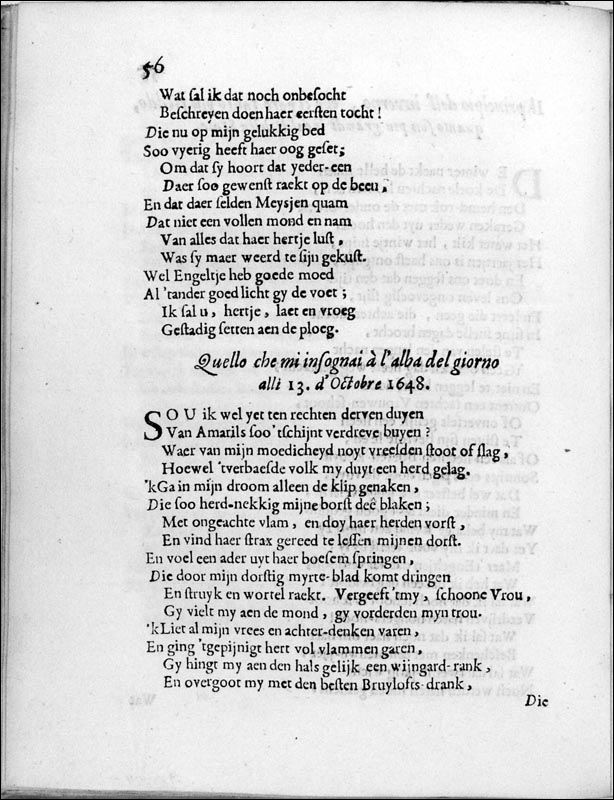 56
Wat ſal ik dat noch onbeſocht
Beſchreyen doen haer eerſten tocht!
Die nu op mijn gelukkig bed
Soo vyerig heeft haer oog geſet;
Om dat ſy hoort dat yeder-een
Daer ſoo gewenſt raekt op de been,
En dat daer ſelden Meysjen quam
Dat niet een vollen mond en nam
Van alles dat haer hertje luſt,
Was ſy maer weerd te ſijn gekuſt.
Wel Engeltje heb goede moed
Al 'tander goed licht gy de voet;
Ik ſal u, hertje, laet en vroeg
Geſtadig ſetten aen de ploeg.
Quello che mi inſognai à l'alba del giorno
alli 13. d'Octobre 1648.
SOU ik wel yet ten rechten derven duyen
Van Amarils ſoo 'tſchijnt verdreve buyen?
Waer van mijn moedicheyd noyt vreeſden ſtoot of ſlag,
Hoewel 'tverbaeſde volk my duyt een herd gelag.
'kGa in mijn droom alleen de klip genaken,
Die ſoo herd-nekkig mijne borſt deê blaken;
Met ongeachte vlam, en doy haer herden vorſt,
En vind haer ſtrax gereed te leſſen mijnen dorſt.
En voel een ader uyt haer boeſem ſpringen,
Die door mijn dorſtig myrte-blad komt dringen
En ſtruyk en wortel raekt. Vergeeft 'tmy, ſchoone Vrou,
Gy vielt my aen de mond, gy vorderden myn trou.
'kLiet al mijn vrees en achter-denken varen,
En ging 'tgepijnigt hert vol vlammen garen,
Gy hingt my aen den hals gelijk een wijngard-rank,
En overgoot my met den beſten Bruylofts-drank,
Die